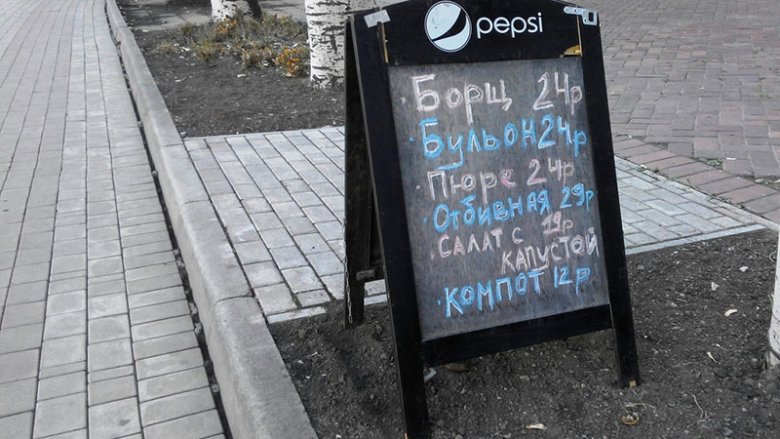 pepsi
· Борщ 24р
· Бульон 24р
· Пюре 24р
· Отбивная 29р
· САЛАТ С 19р
КАПУСТОЙ
· КОМПОТ 12р